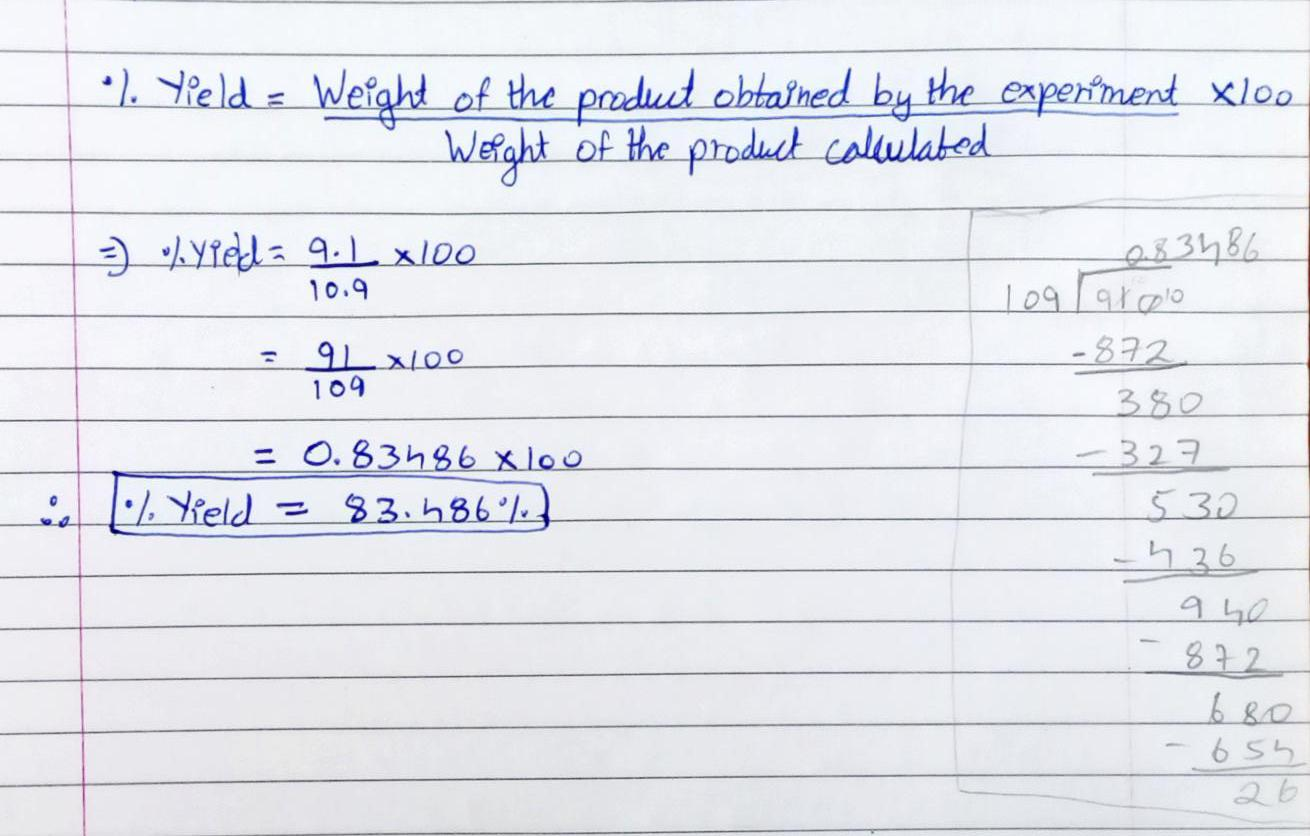 % Yield = Weight of the product obtained by the experiment ×100
Weight of the product calculated
⇒ % Yield = 9.1 ×100
10.9
= 91 ×100
109
= 0.83486 ×100
∴ % Yield = 83.486%
0.83486
109
-872
380
-327
530
-436
940
-872
680
-654
26